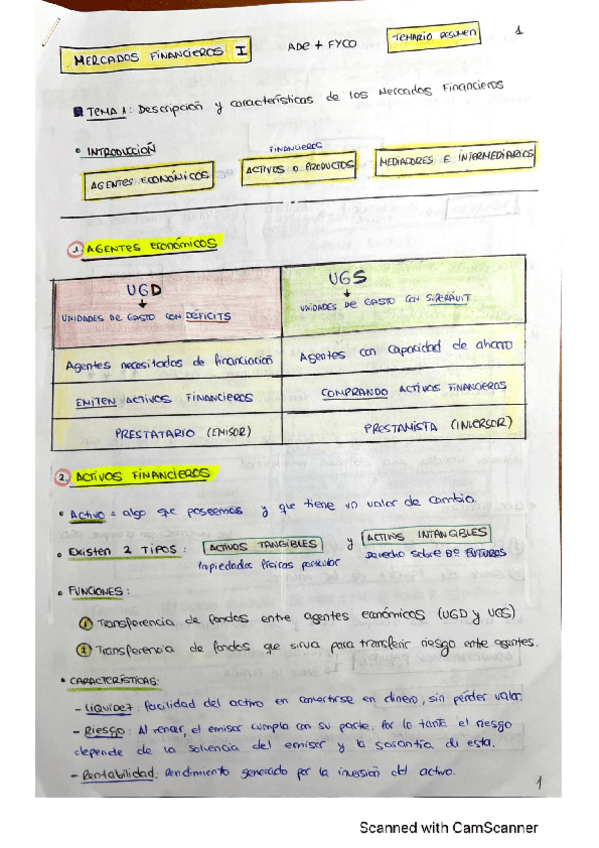 MERCADOS FINANCIEROS I
ADE + FYCO
TEMARIO RESUMEN
1
TEMA 1: Descripción y características de los Mercados Financieros
• INTRODUCCIÓN
AGENTES ECONÓMICOS
FINANCIEROS
ACTIVOS O PRODUCTOS
MEDIADORES E INTERMEDIARIOS
1. AGENTES ECONÓMICOS
UGD
UNIDADES DE GASTO CON DÉFICITS
UGS
UNIDADES DE GASTO CON SUPERÁVIT
Agentes necesitados de financiación
Agentes con capacidad de ahorro
EMITEN ACTIVOS FINANCIEROS
COMPRANDO ACTIVOS FINANCIEROS
PRESTATARIO (EMISOR)
PRESTAMISTA (INVERSOR)
2. ACTIVOS FINANCIEROS
• Activo = algo que poseemos y que tiene un valor de cambio.
• Existen 2 TIPOS: ACTIVOS TANGIBLES y ACTIVOS INTANGIBLES
Propiedades físicas particular
Derecho sobre Bº FUTUROS
• FUNCIONES:
1 Transferencia de fondos entre agentes económicos (UGD y UGS)
2 Transferencia de fondos que sirva para transferir riesgo entre agentes.
• CARACTERÍSTICAS:
- LIQUIDEZ: facilidad del activo en convertirse en dinero, sin perder valor.
- Riesgo: Al vencer, el emisor cumpla con su parte. Por lo tanto el riesgo
depende de la solvencia del emisor y la garantía di esta.
- Rentabilidad: Rendimiento generado por la inversión del activo.
1
Scanned with CamScanner